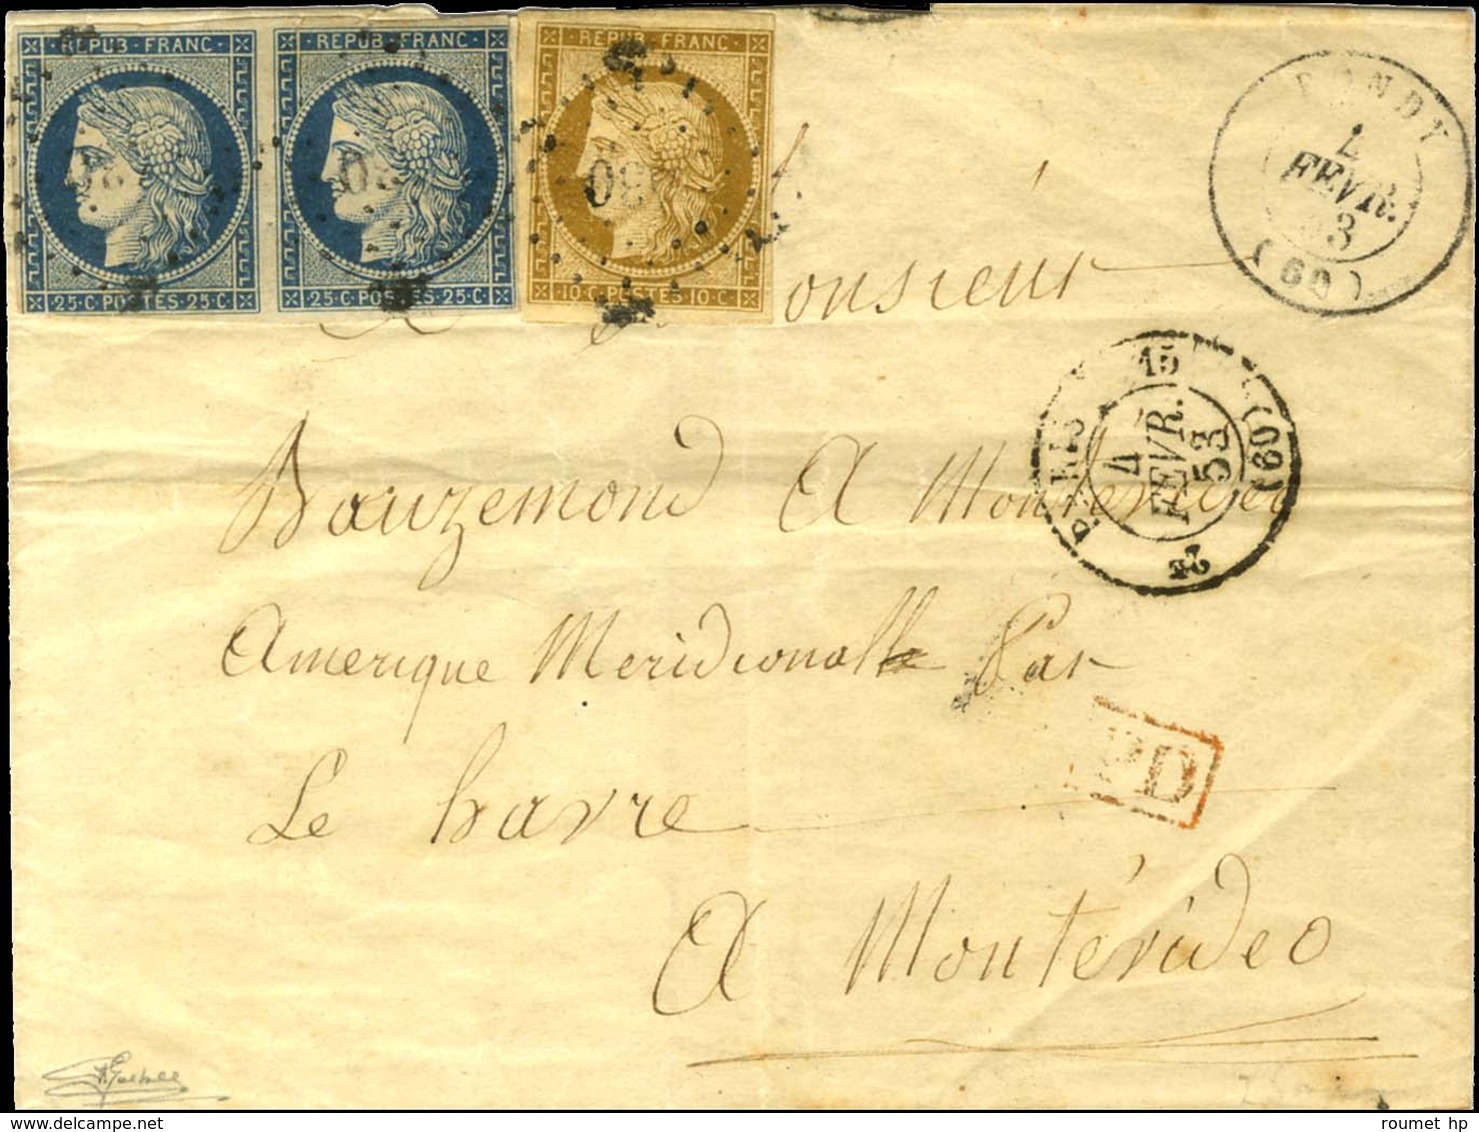 REPUB·FRANC·
REPUB·FRANC·
REPUB·FRANC·
25·C POSTES 25·C
25·C POSTES 25·C
10·C POSTES 10·C
BONDY
FEVR.
53
(60)
Monsieur
PARIS 15
4
FEVR.
53
(60)
Bouzemond A Montevideo
Amerique Meridionalle Par
Le havre
PD
A Montévideo
roumet hp